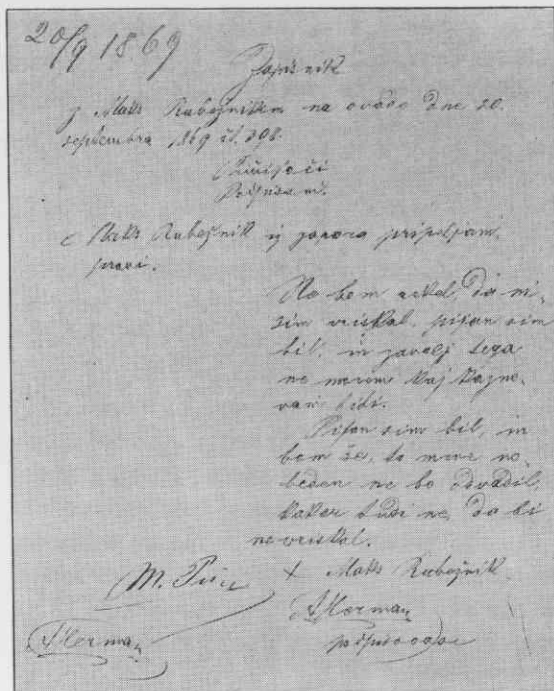 20/9 1869
Zapisnik
z Maks Rubežnikem na ovado dne 20.
septembra 1869 čt. 398.
Pričijoči
Podpisani.
Maks Rubežnik iz zapora pripeljani,
pravi.
Ne bom rekel, da ni-
sim vriskal, pijan sim
bil, in zavolj tega
ne morem kaj kazno-
van biti.
Pijan sim bil, in
bom še, to mene no-
beden ne bo odvadil,
kaker tudi ne, da bi
ne vriskal.
M.
+ Maks Rubežnik
AHerman
AHerman